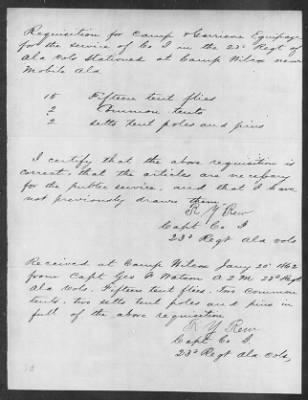 Requisition for Camp & Garrison Equipage
for the service of Co I in the 23d Regt of
Ala Vols Stationed at Camp Wilcox near
Mobile Ala
15 Fifteen tent flies
2 Common tents
2 setts tent poles and pins
I certify that the above requisition is
correct, that the articles are necessary
for the public service, and that I have
not previously drawn them
R Y Rew
Capt Co I
23d Regt Ala vols
Received at Camp Wilcox Jany 20th 1862
from Capt Geo P Watson A Q M 23d Regt
Ala Vols. Fifteen tent flies. Two common
tents, two setts tent poles and pins in
full of the above requisition
R Y Rew
Capt Co I,
23d Regt Ala Vols,